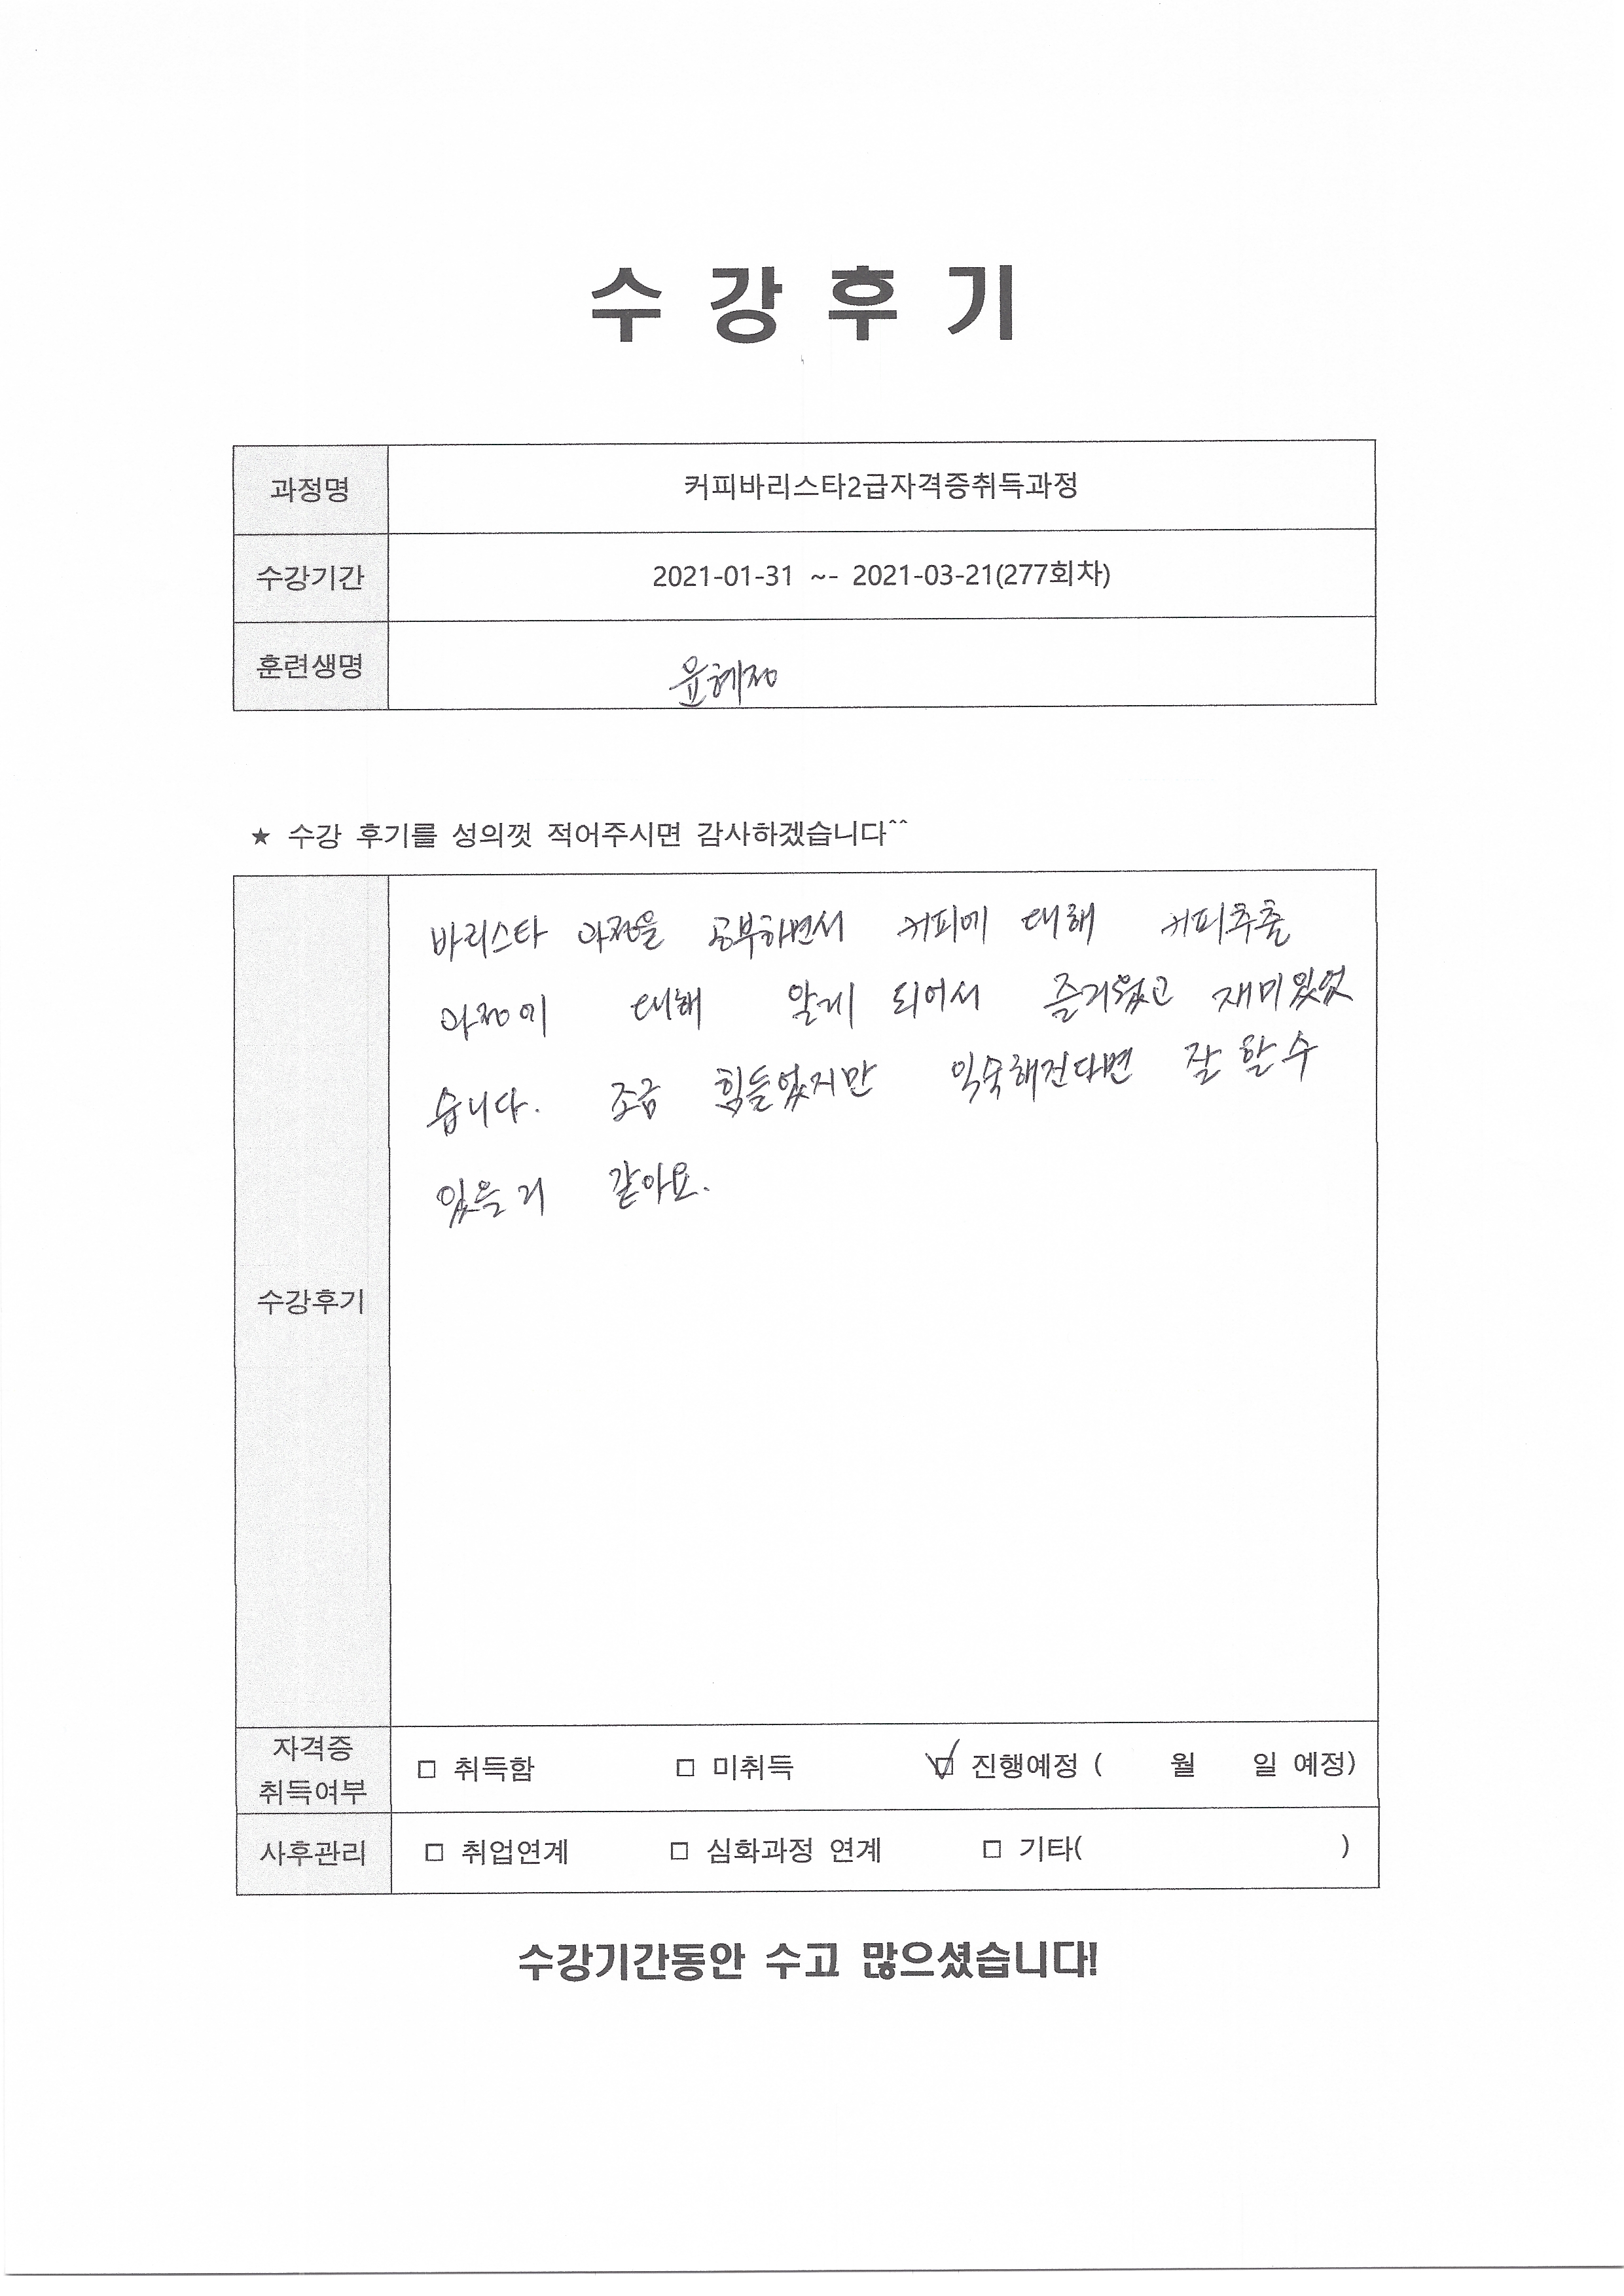 수 강 후 기
과정명 커피바리스타2급자격증취득과정
수강기간 2021-01-31 ~- 2021-03-21(277회차)
훈련생명 윤혜정
★ 수강 후기를 성의껏 적어주시면 감사하겠습니다^^
바리스타 과정을 공부하면서 커피에 대해 커피추출
과정에 대해 알게 되어서 즐거웠고 재미있었
습니다. 조금 힘들었지만 익숙해진다면 잘 할 수
있을거 같아요.
수강후기
자격증
취득여부 □ 취득함 □ 미취득 ☑ 진행예정 ( 월 일 예정)
사후관리 □ 취업연계 □ 심화과정 연계 □ 기타( )
수강기간동안 수고 많으셨습니다!